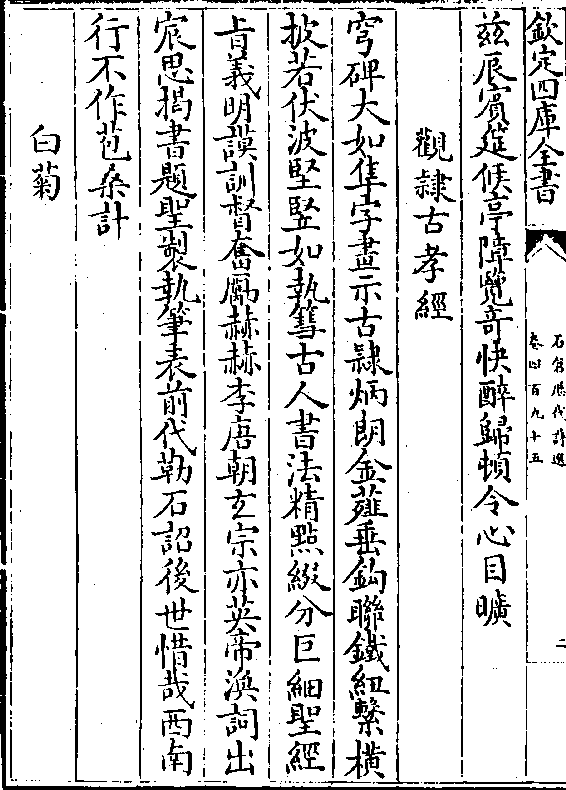 欽定四庫全書
石倉歷代詩選
卷四百九十五
二
茲辰賓筵候亭障覽奇快醉歸頓令心目曠
觀隸古孝經
穹碑大如隼字畫示古隸炳朗金薤垂鈎聯鐵紐繫橫
披若伏波堅豎如執篲古人書法精點綴分巨細聖經
旨義明謨訓督奮厲赫赫李唐朝玄宗亦英帝渙詞出
宸思揭書題聖製執筆表前代勒石詔後世惜哉西南
行不作苞桑計
白菊